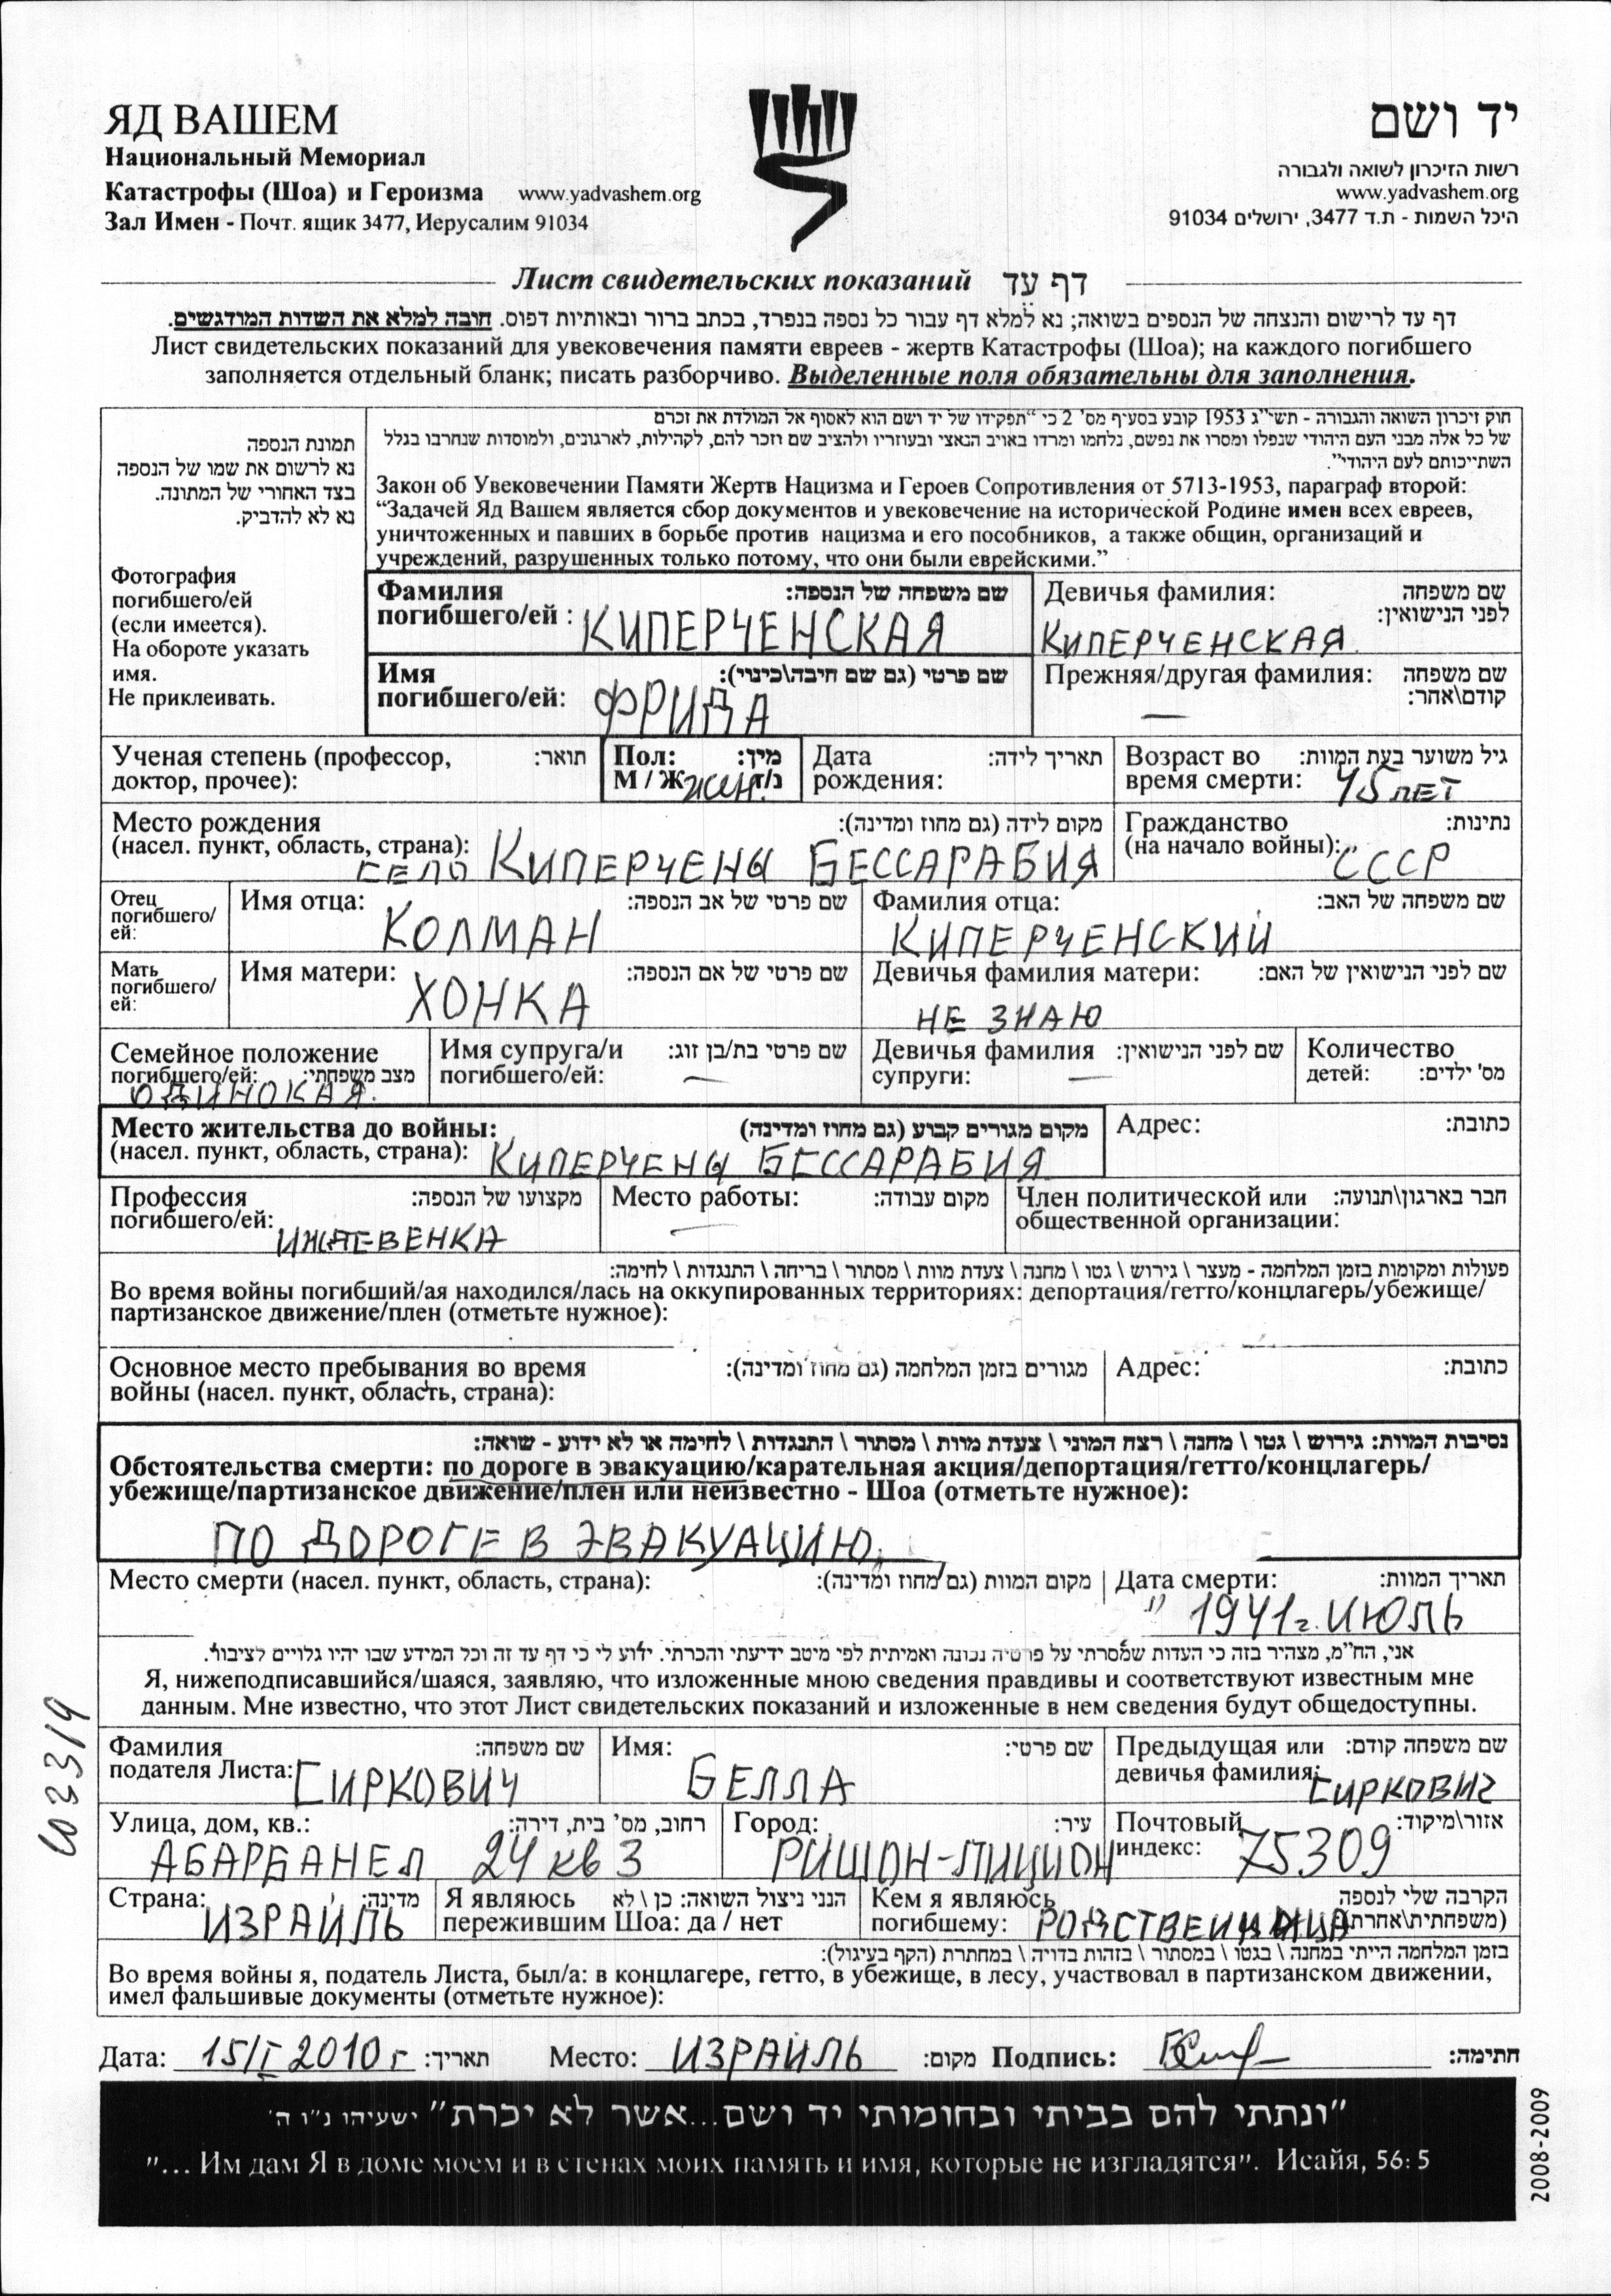 ЯД ВАШЕМ
Национальный Мемориал
Катастрофы (Шоа) и Героизма www.yadvashem.org
Зал Имен - Почт. ящик 3477, Иерусалим 91034
יד ושם
רשות הזיכרון לשואה ולגבורה
www.yadvashem.org
היכל השמות - ת.ד 3477, ירושלים 91034
Лист свидетельских показаний דף עד
דף עד לרישום והנצחה של הנספים בשואה; נא למלא דף עבור כל נספה בנפרד, בכתב ברור ובאותיות דפוס. חובה למלא את השדות המודגשים.
Лист свидетельских показаний для увековечения памяти евреев - жертв Катастрофы (Шоа); на каждого погибшего
заполняется отдельный бланк; писать разборчиво. Выделенные поля обязательны для заполнения.
תמונת הנספה
נא לרשום את שמו של הנספה
בצד האחורי של המתונה.
נא לא להדביק.
Фотография
погибшего/ей
(если имеется).
На обороте указать
имя.
Не приклеивать.
חוק זיכרון השואה והגבורה - תשי"ג 1953 קובע בסעיף מס' 2 כי "תפקידו של יד ושם הוא לאסוף אל המולדת את זכרם
של כל אלה מבני העם היהודי שנפלו ומסרו את נפשם, נלחמו ומרדו באויב הנאצי ובעוזריו ולהציב שם וזכר להם, לקהילות, לארגונים, ולמוסדות שנחרבו בגלל
השתייכותם לעם היהודי".
Закон об Увековечении Памяти Жертв Нацизма и Героев Сопротивления от 5713-1953, параграф второй:
“Задачей Яд Вашем является сбор документов и увековечение на исторической Родине имен всех евреев,
уничтоженных и павших в борьбе против нацизма и его пособников, а также общин, организаций и
учреждений, разрушенных только потому, что они были еврейскими.”
Фамилия שם משפחה של הנספה:
погибшего/ей : КИПЕРЧЕНСКАЯ
Девичья фамилия: שם משפחה
לפני הנישואין:
КИПЕРЧЕНСКАЯ
Имя שם פרטי (גם שם חיבה\כינוי):
погибшего/ей: ФРИДА
Прежняя/другая фамилия: שם משפחה
קודם\אחר:
—
Ученая степень (профессор, תואר:
доктор, прочее):
Пол: מין:
М / Ж жен. ז/נ
Дата תאריך לידה:
рождения:
Возраст во גיל משוער בעת המוות:
время смерти: 45 лет
Место рождения מקום לידה (גם מחוז ומדינה):
(насел. пункт, область, страна): СЕЛО КИПЕРЧЕНЫ БЕССАРАБИЯ
Гражданство נתינות:
(на начало войны): СССР
Отец
погибшего/
ей:
Имя отца: שם פרטי של אב הנספה:
КОЛМАН
Фамилия отца: שם משפחה של האב:
КИПЕРЧЕНСКИЙ
Мать
погибшего/
ей:
Имя матери: שם פרטי של אם הנספה:
ХОНКА
Девичья фамилия матери: שם לפני הנישואין של האם:
НЕ ЗНАЮ
Семейное положение
погибшего/ей: מצב משפחתי:
ОДИНОКАЯ.
Имя супруга/и שם פרטי בת/בן זוג:
погибшего/ей: —
Девичья фамилия שם לפני הנישואין:
супруги: —
Количество
детей: מס' ילדים:
Место жительства до войны: מקום מגורים קבוע (גם מחוז ומדינה)
(насел. пункт, область, страна): КИПЕРЧЕНЫ БЕССАРАБИЯ
Адрес: כתובת:
Профессия מקצועו של הנספה:
погибшего/ей: ИЖДЕВЕНКА
Место работы: מקום עבודה:
—
Член политической или חבר בארגון\תנועה:
общественной организации:
פעולות ומקומות בזמן המלחמה - מעצר \ גירוש \ גטו \ מחנה \ צעדת מוות \ מסתור \ בריחה \ התנגדות \ לחימה:
Во время войны погибший/ая находился/лась на оккупированных территориях: депортация/гетто/концлагерь/убежище/
партизанское движение/плен (отметьте нужное):
Основное место пребывания во время מגורים בזמן המלחמה (גם מחוז ומדינה):
войны (насел. пункт, область, страна):
Адрес: כתובת:
נסיבות המוות: גירוש \ גטו \ מחנה \ רצח המוני \ צעדת מוות \ מסתור \ התנגדות \ לחימה או לא ידוע - שואה:
Обстоятельства смерти: по дороге в эвакуацию/карательная акция/депортация/гетто/концлагерь/
убежище/партизанское движение/плен или неизвестно - Шоа (отметьте нужное):
ПО ДОРОГЕ В ЭВАКУАЦИЮ.
Место смерти (насел. пункт, область, страна): מקום המוות (גם מחוז ומדינה):
Дата смерти: תאריך המוות:
" 1941г. ИЮЛЬ
אני, הח"מ, מצהיר בזה כי העדות שמסרתי על פרטיה נכונה ואמיתית לפי מיטב ידיעתי והכרתי. ידוע לי כי דף עד זה וכל המידע שבו יהיו גלויים לציבור.
Я, нижеподписавшийся/шаяся, заявляю, что изложенные мною сведения правдивы и соответствуют известным мне
данным. Мне известно, что этот Лист свидетельских показаний и изложенные в нем сведения будут общедоступны.
Фамилия שם משפחה:
подателя Листа: СИРКОВИЧ
Имя: שם פרטי:
БЕЛЛА
Предыдущая или שם משפחה קודם:
девичья фамилия: СИРКОВИЧ
Улица, дом, кв.: רחוב, מס' בית, דירה:
АБАРБАНЕЛ 24 кв 3
Город: עיר:
РИШОН-ЛИЦИОН
Почтовый אזור\מיקוד:
индекс: 75309
Страна: מדינה:
ИЗРАИЛЬ
Я являюсь הנני ניצול השואה: כן \ לא
пережившим Шоа: да / нет
Кем я являюсь הקרבה שלי לנספה
погибшему: (משפחתית\אחרת)
בזמן המלחמה הייתי במחנה \ בגטו \ במסתור \ בזהות בדויה \ במחתרת (הקף בעיגול):
Во время войны я, податель Листа, был/а: в концлагере, гетто, в убежище, в лесу, участвовал в партизанском движении,
имел фальшивые документы (отметьте нужное):
Дата: 15/I 2010 г תאריך: Место: ИЗРАИЛЬ מקום: Подпись: חתימה:
"ונתתי להם בביתי ובחומותי יד ושם...אשר לא יכרת" ישעיהו נ"ו ה'
"... Им дам Я в доме моем и в стенах моих память и имя, которые не изгладятся". Исайя, 56: 5
2008-2009